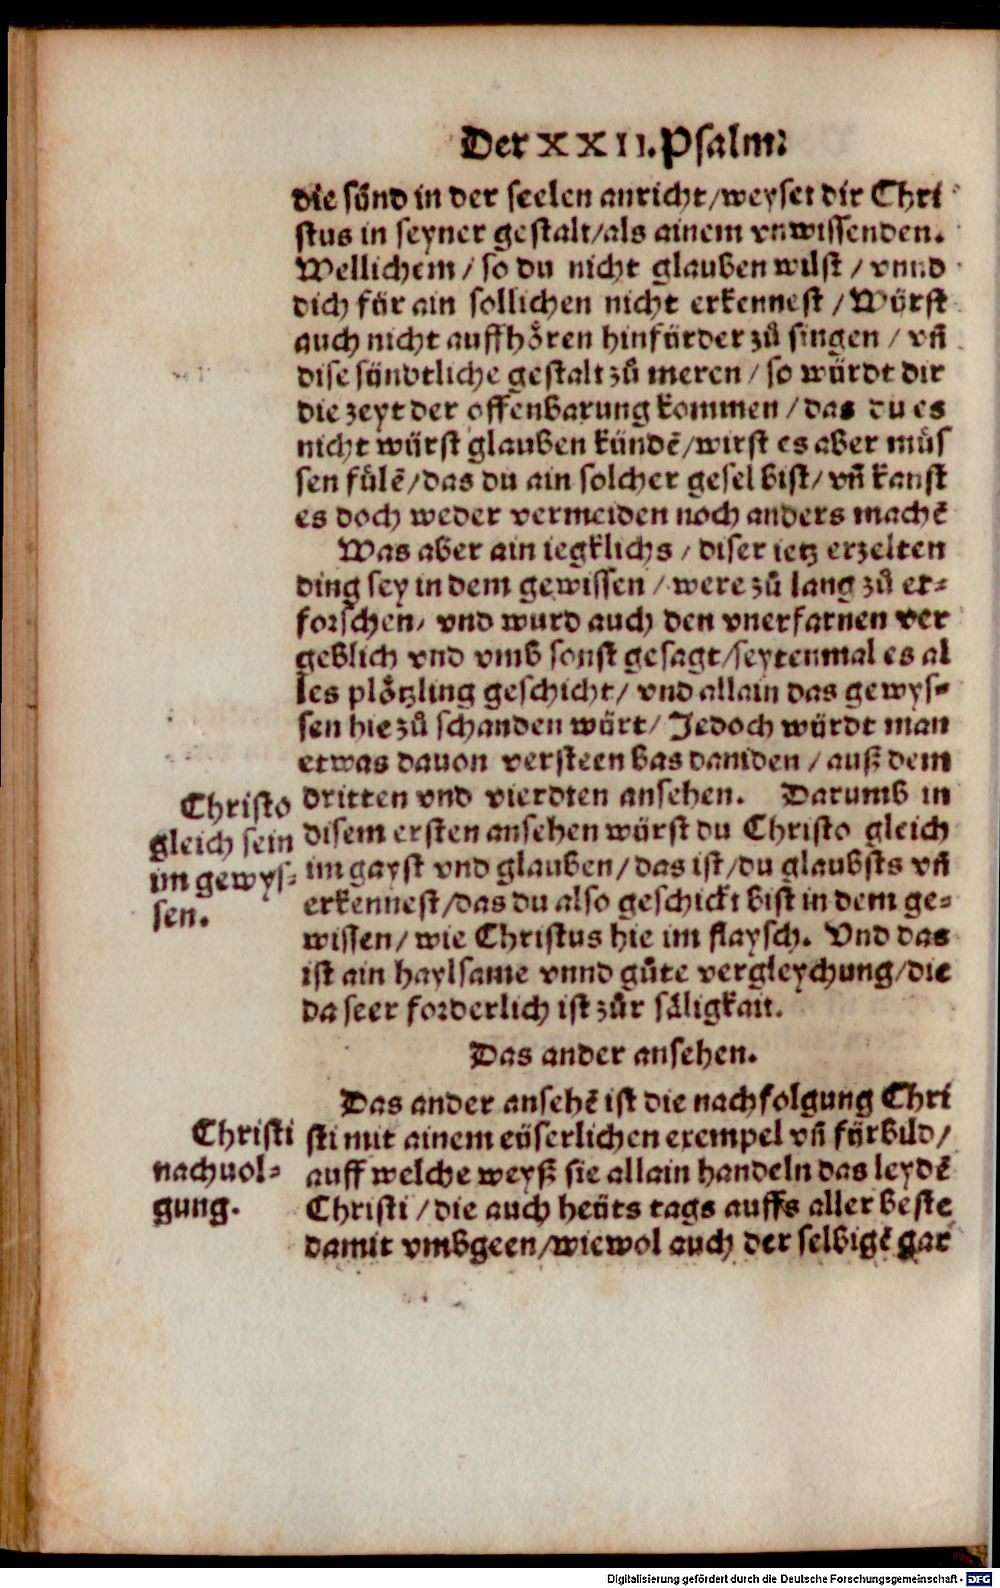 Der XXII. Psalm:
die sünd in der seelen anricht/weyset dir Chri
stus in seyner gestalt/als ainem vnwissenden.
Wellichem/so du nicht glauben wilst/vnnd
dich für ain sollichen nicht erkennest/Würst
auch nicht auffhören hinfürder zů singen/vñ
dise sündtliche gestalt zů meren/so würdt dir
die zeyt der offenbarung kommen/das du es
nicht würst glauben kündẽ/wirst es aber můs
sen fůlẽ/das du ain solcher gesel bist/vñ kanst
es doch weder vermeiden noch anders machẽ
Was aber ain iegklichs/diser ietz erzelten
ding sey in dem gewissen/were zů lang zů er=
forschen/vnd wurd auch den vnerfarnen ver
geblich vnd vmb sonst gesagt/seytenmal es al
les plötzling geschicht/vnd allain das gewys=
sen hie zů schanden würt/Jedoch würdt man
etwas dauon versteen bas daniden/auß dem
Christo
gleich sein
im gewys=
sen.
dritten vnd vierdten ansehen. Darumb in
disem ersten ansehen würst du Christo gleich
im gayst vnd glauben/das ist/du glaubsts vñ
erkennest/das du also geschickt bist in dem ge=
wissen/wie Christus hie im flaysch. Vnd das
ist ain haylsame vnnd gůte vergleychung/die
da seer forderlich ist zůr säligkait.
Das ander ansehen.
Das ander ansehẽ ist die nachfolgung Chri
Christi
nachuol=
gung.
sti mit ainem eüserlichen exempel vñ fürbild/
auff welche weyß sie allain handeln das leydẽ
Christi/die auch heüts tags auffs aller beste
damit vmbgeen/wiewol auch der selbigẽ gar
Digitalisierung gefördert durch die Deutsche Forschungsgemeinschaft - DFG